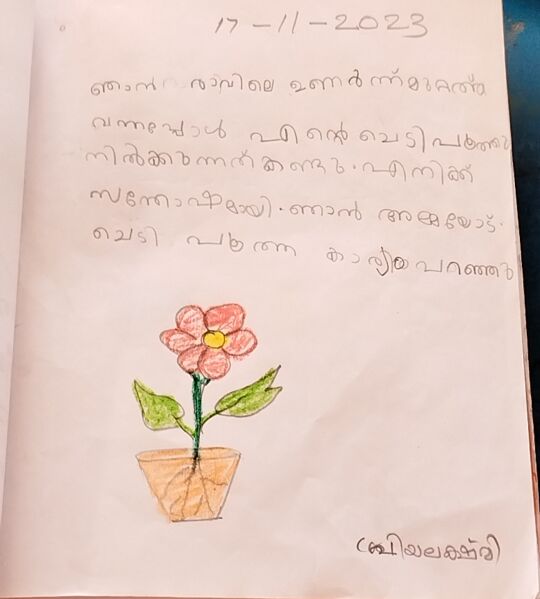 17-11-2023
ഞാൻ രാവിലെ ഉണർന്ന് മുറ്റത്ത്
വന്നപ്പോൾ എന്റെ ചെടി പൂത്തു
നിൽക്കുന്നത് കണ്ടു. എനിക്ക്
സന്തോഷമായി. ഞാൻ അമ്മയോട്.
ചെടി പൂത്ത കാര്യം പറഞ്ഞു